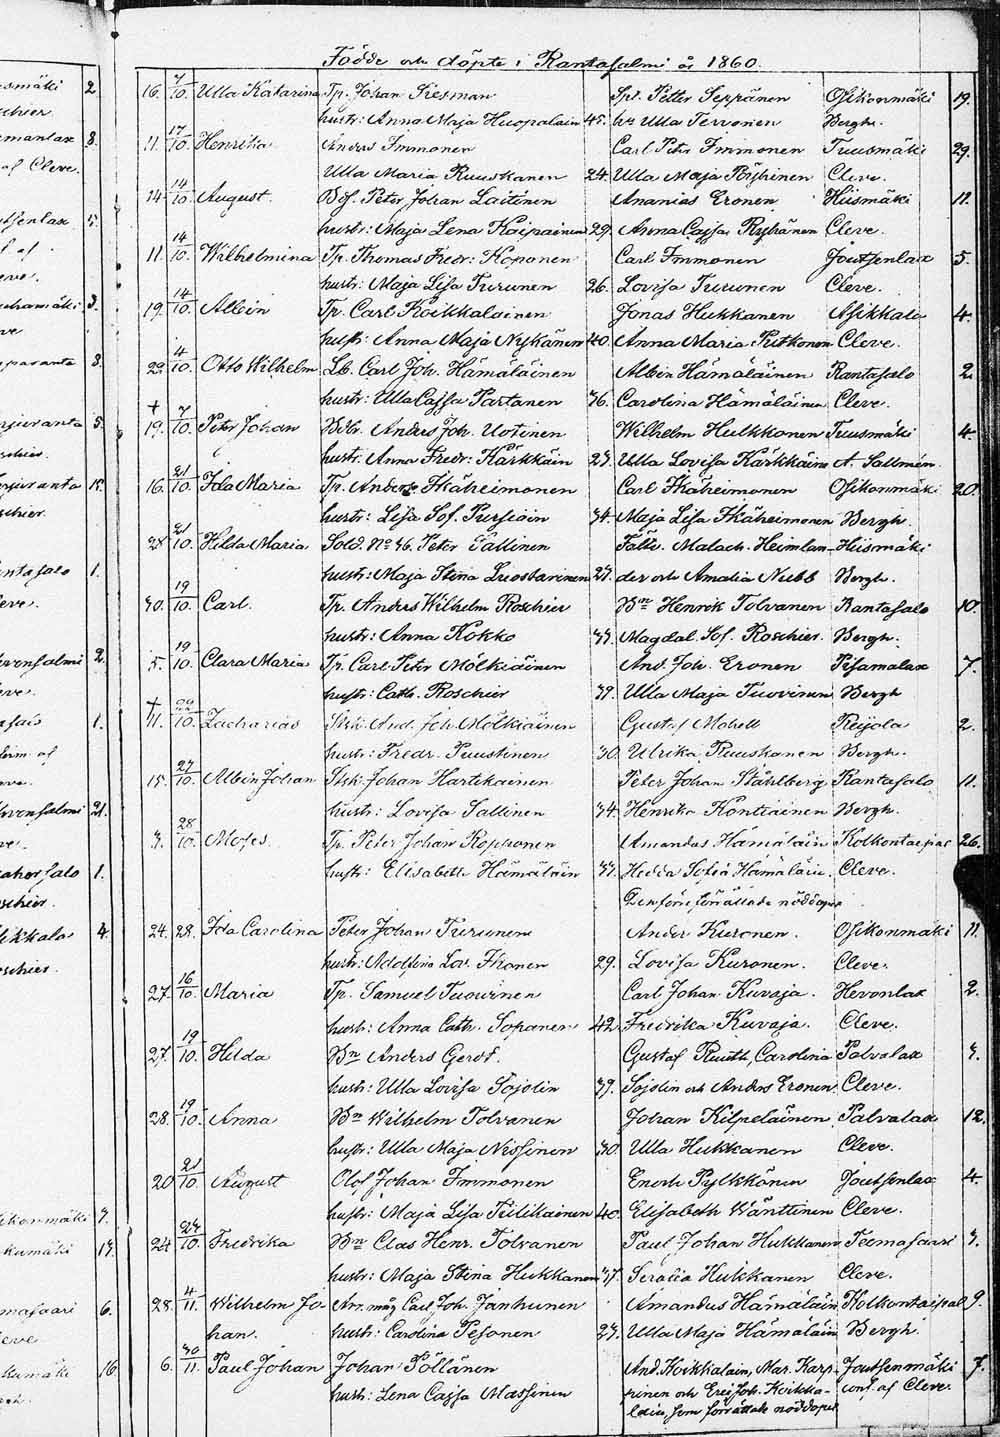 Födde och döpte i Rantasalmi år 1860.
16. 7/10. Ulla Katarina Tp. Johan Kiesman Spl. Petter Seppänen Osikonmäki 19.
hustr: Anna Maja Huopalain 45. hu Ulla Tervonen Bergh.
11. 17/10. Henrika Anders Immonen Carl Petr Immonen Tuusmäki 29.
Ulla Maria Ruuskanen 24. Ulla Maja Pöyhönen Cleve.
14. 14/10. August. Bdf. Peter Johan Laitinen Ananias Eronen Hiismäki 11.
hustr: Maja Lena Kaipainen 29. Anna Cajsa Ryhänen Cleve.
11. 14/10. Wilhelmina Tp. Thomas Fredr: Koponen Carl Immonen Joutsenlax 5.
hustr: Maja Lisa Turunen 26. Lovisa Turunen Cleve.
19. 14/10. Albin Tp. Carl Koikkalainen Jonas Hukkanen Asikkala 4.
hustr: Anna Maja Nykänen 40. Anna Maria Putkonen Cleve.
22. 4/10. Otto Wilhelm Lb. Carl Joh. Hämäläinen Albin Hämäläinen Rantasalo 2.
hustr: Ulla Cajsa Partanen 36. Carolina Hämäläinen Cleve.
† 19. 7/10. Peter Johan Anders Joh. Uotinen Wilhelm Hulkkonen Tuusmäki 4.
hustr. Anna Fredr: Kärkkäin 27. Ulla Lovisa Kärkkäine A. Sallmén.
16. 21/10. Ida Maria Tp. Anders Ikäheimonen Carl Ikäheimonen Osikonmäki 20.
hustr: Lisa Sof. Pursiain 34. Maja Lisa Ikäheimonen Bergh.
28. 21/10. Hilda Maria Sold. No 46. Peter Tallinen Fältv. Malach. Heimlan- Hiismäki
hustr: Maja Stina Luostarinen 27. der och Amalia Nubb Bergh.
30. 19/10. Carl. Tp. Anders Wilhelm Roschier Bm Henrik Tolvanen Rantasalo 10.
hustr: Anna Kokko 33. Magdal. Sof. Roschier. Bergh.
5. 19/10. Clara Maria Tp. Carl Petr Mölkiäinen And. Joh. Eronen Pisamalax 7.
hustr: Cath. Roschier 39. Ulla Maja Tuovinen Bergh
† 11. 22/10. Zacharias And. Joh. Mölkiäinen Gustaf Mobell Reijola 2.
hustr: Fredr. Puustinen 30. Ulrika Ruuskanen Bergh.
15. 27/10. Albin Johan Johan Hartikainen Peter Johan Ståhlberg Rantasalo 11.
hustr: Lovisa Sallinen 34. Henrika Kontiainen Bergh.
3. 28/10. Moses. Tp. Peter Johan Kopponen Amandus Hämäläin Kolkontaipal 26.
hustr: Elisabeth Hämäläin 33. Hedda Sofia Hämäläin. Cleve.
Den förre förrättade nöddopet
24. 28. Ida Carolina Peter Johan Turunen Ander Kuronen. Osikonmäki 11.
hustr: Adolfina Lov. Ikonen 29. Lovisa Kuronen. Cleve.
27. 16/10. Maria Tp. Samuel Tuovinen Carl Johan Kuvaja. Hevonlax 2.
hustr: Anna Cath. Sopanen 42. Fredrika Kuvaja. Cleve.
27. 19/10. Hilda Bm Anders Gerdt. Gustaf Ruuth, Carolina Palvalax 3.
hustr: Ulla Lovisa Sojolin 39. Sojolin och Anders Eronen Cleve.
28. 19/10. Anna Bm Wilhelm Tolvanen Johan Kilpeläinen Palvalax 12.
hustr: Ulla Maja Nissinen 30. Ulla Hukkanen Cleve.
20. 21/10. August Olof Johan Immonen Enoch Pylkkönen Joutsenlax 4.
hustr: Maja Lisa Tiilikainen 40. Elisabeth Wänttinen Cleve.
24. 24/10. Fredrika Bm Clas Henr. Tolvanen Paul Johan Hukkanen Teemasaari 3.
hustr: Maja Stina Hukkanen 37. Serafia Hukkanen Cleve.
28. 4/11. Wilhelm Jo Arr. måg Carl Joh. Janhunen Amandus Hämäläin Kolkontaipal 9.
han. hustr: Carolina Pesonen 27. Ulla Maja Hämäläin Bergh.
6. 30/11. Paul Johan Johan Pöllänen And. Koikkalain, Mar. Karp- Joutsenmäki 7.
hustr: Lena Cajsa Massinen pinen och Joh. Koikka- conf. af Cleve.
lain, som förrättade nöddopet